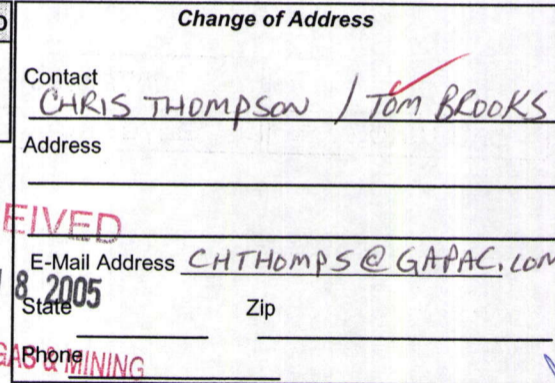 Change of Address
Contact
CHRIS THOMPSON / TOM BROOKS
Address
EIVED
E-Mail Address CHTHOMPS@GAPAC.COM
8 2005
State Zip
Phone
GAS & MINING